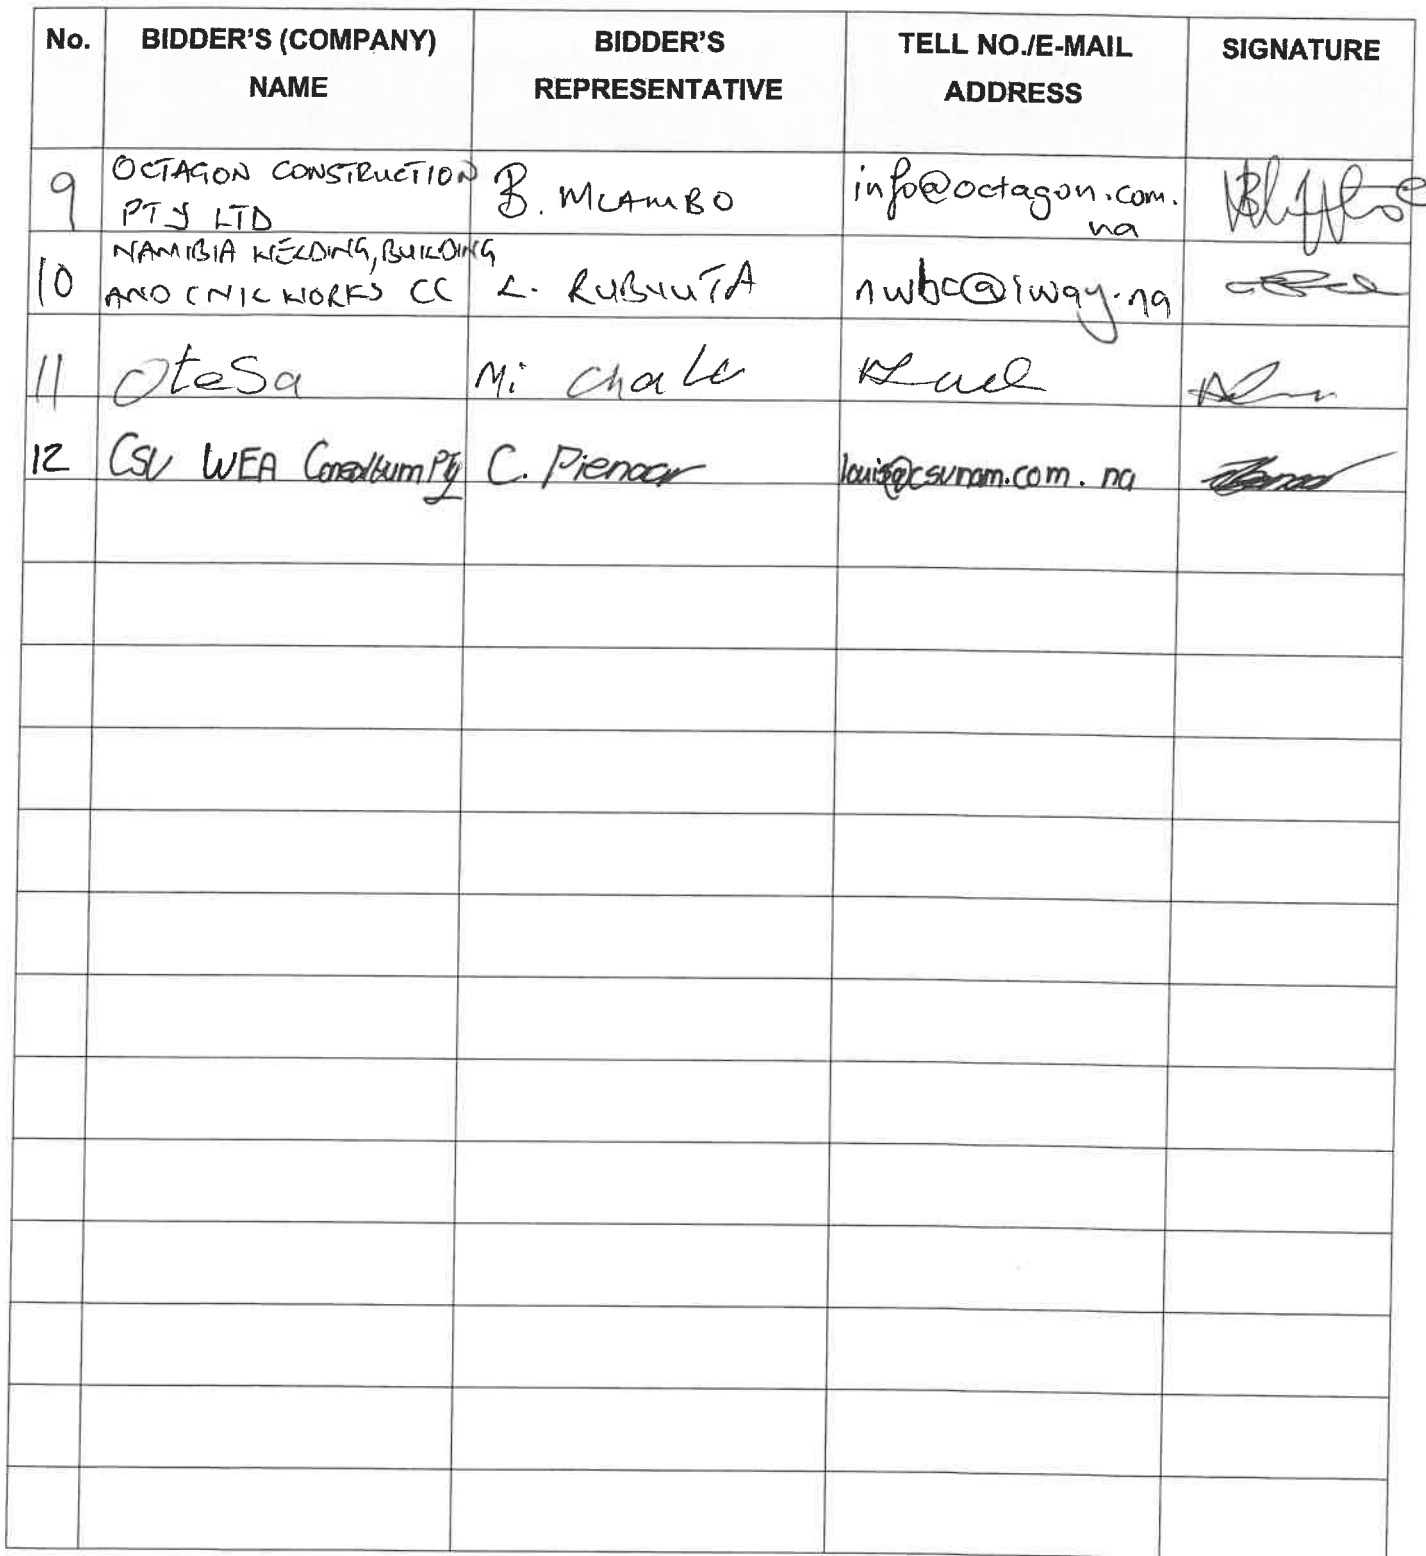 No. BIDDER'S (COMPANY) NAME BIDDER'S REPRESENTATIVE TELL NO./E-MAIL ADDRESS SIGNATURE
9 OCTAGON CONSTRUCTION PTY LTD B. MLAMBO info@octagon.com.na
10 NAMIBIA WELDING, BUILDING AND CIVIL WORKS CC L. nwbc@iway.na
11 Otesa
12 CSV WEA Pty C. Pienaar louis@csvnam.com.na